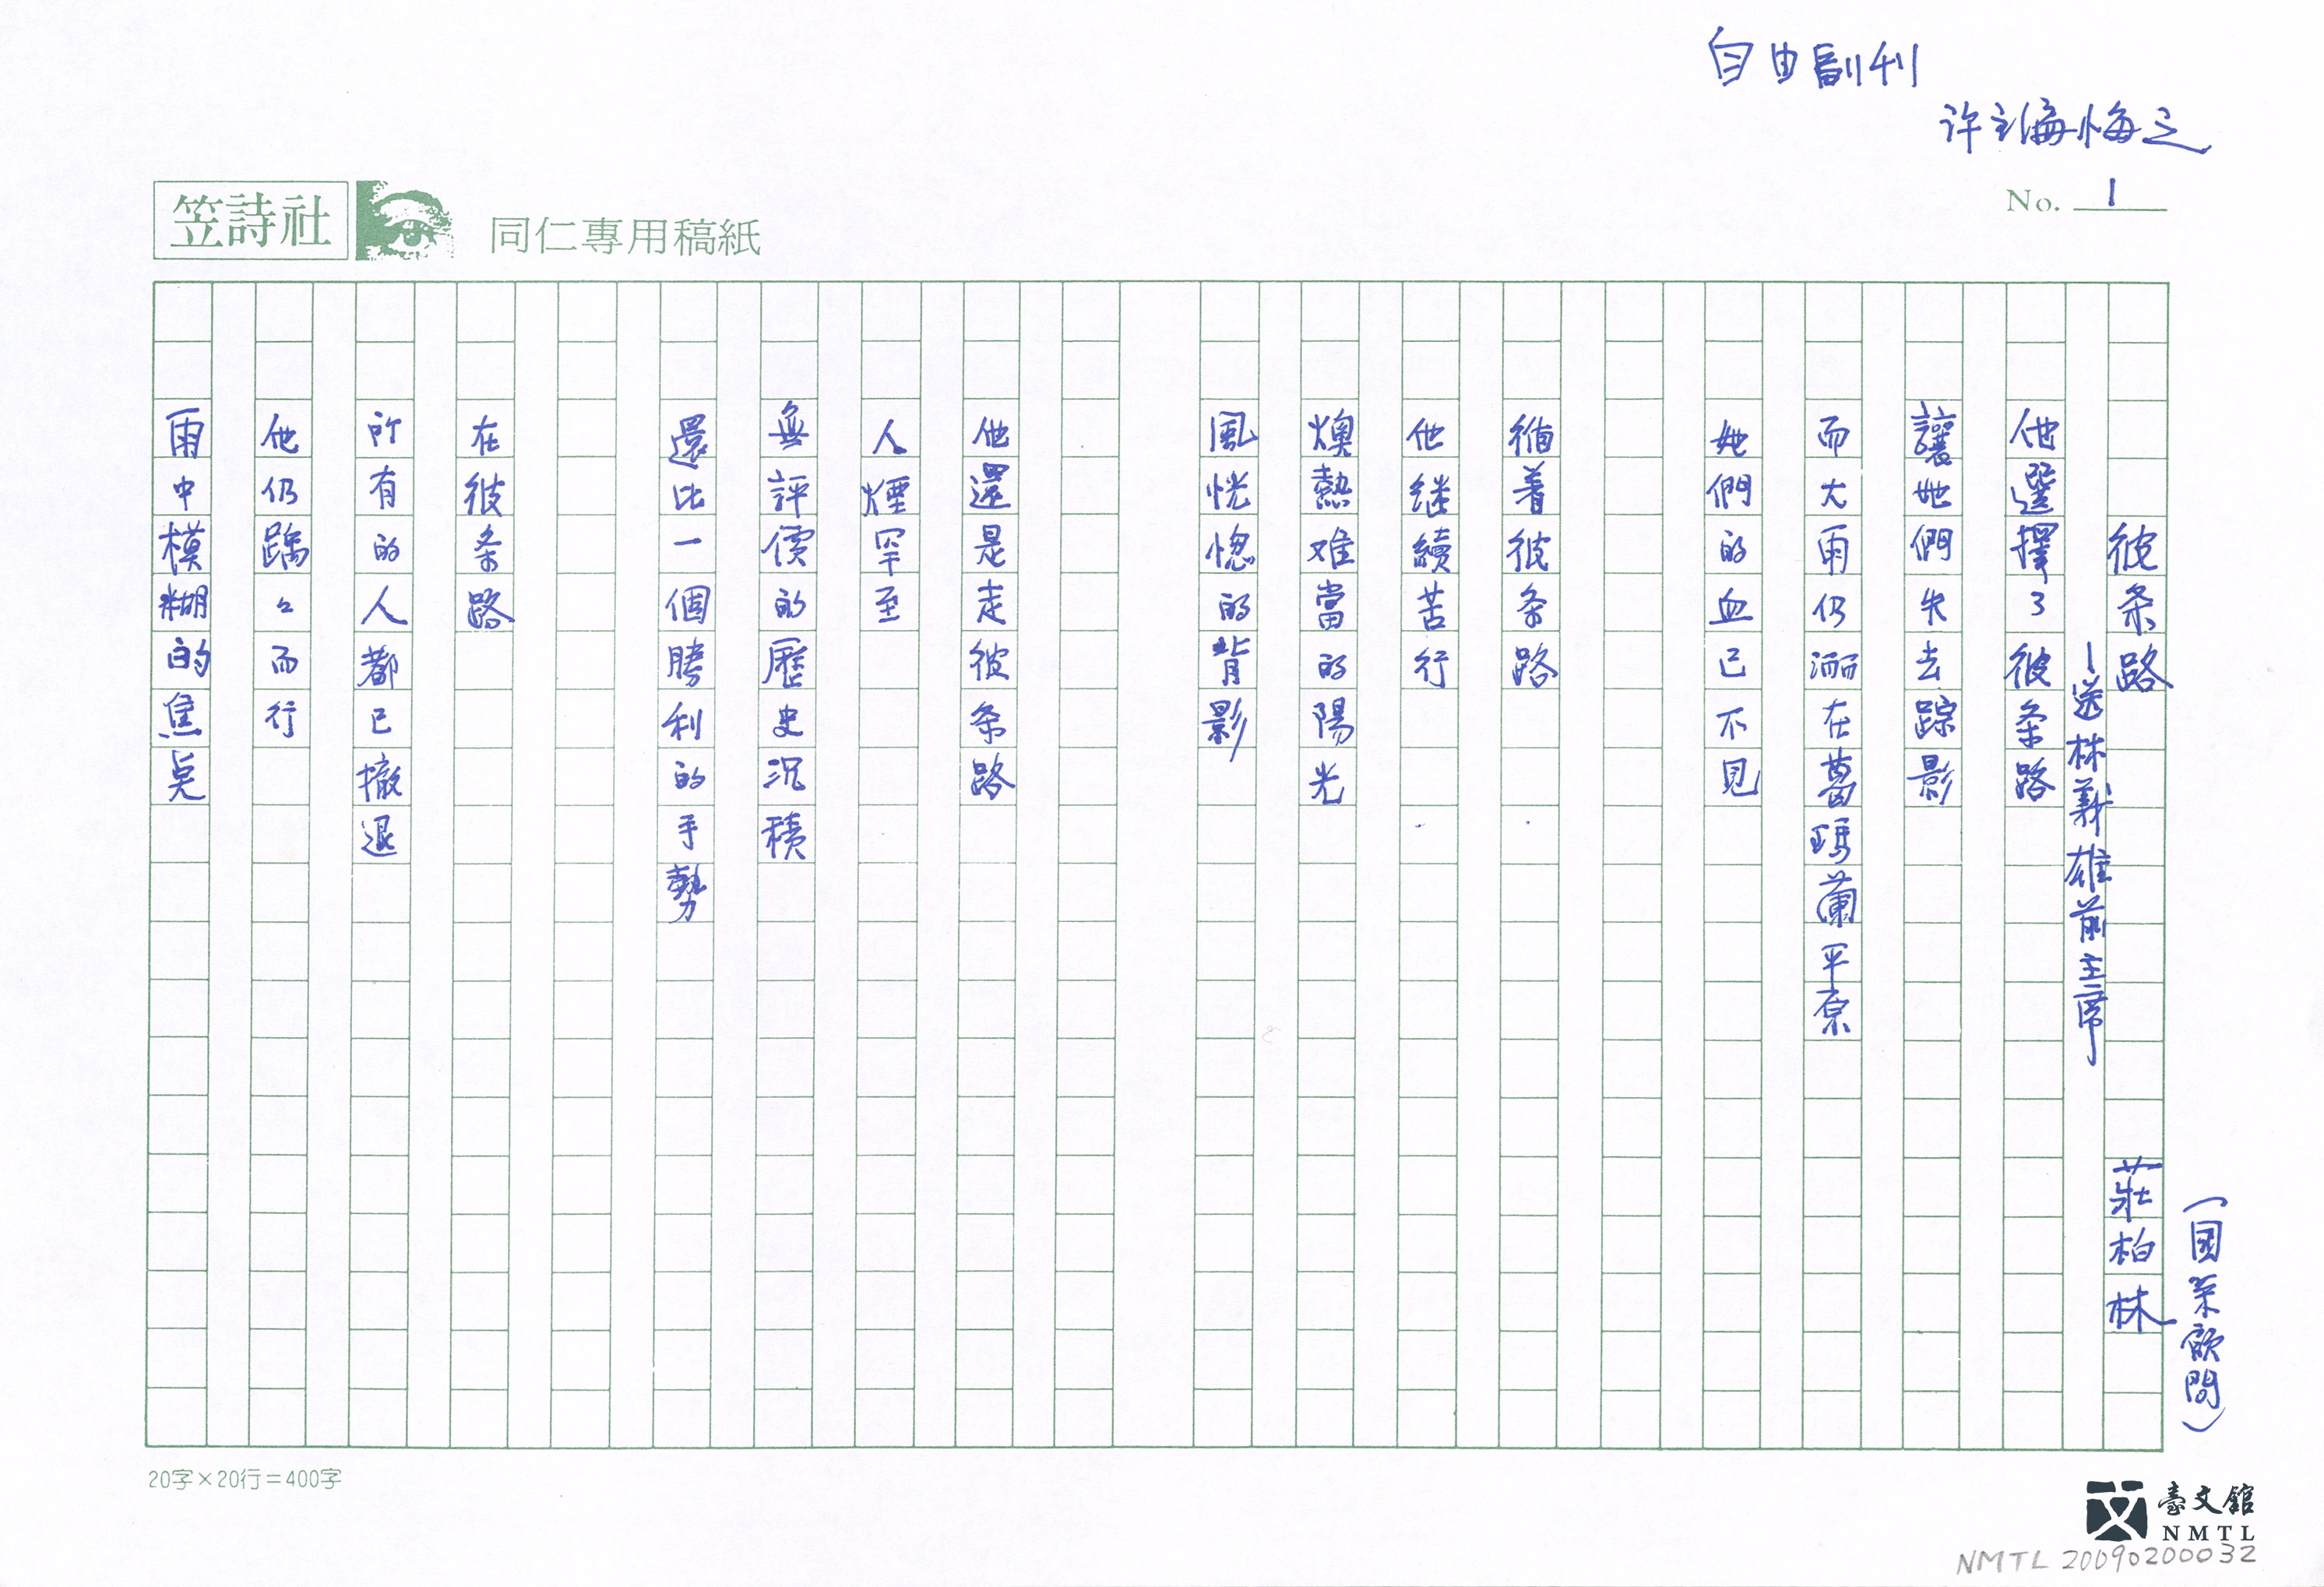 自由副刊
許主編悔之
No. 1
笠詩社
同仁專用稿紙
彼条路
莊柏林
(国策顧問)
—送林義雄前主席
他選擇了彼条路
讓她們失去踪影
而大雨仍洒在葛瑪蘭平原
她們的血已不見
循着彼条路
他继續苦行
燠熱难當的陽光
風恍惚的背影
他還是走彼条路
人煙罕至
無評價的歷史沉積
還比一個勝利的手勢
在彼条路
所有的人都已撤退
他仍踽々而行
雨中模糊的焦点
20字×20行=400字
臺文館
NMTL
NMTL 20090200032